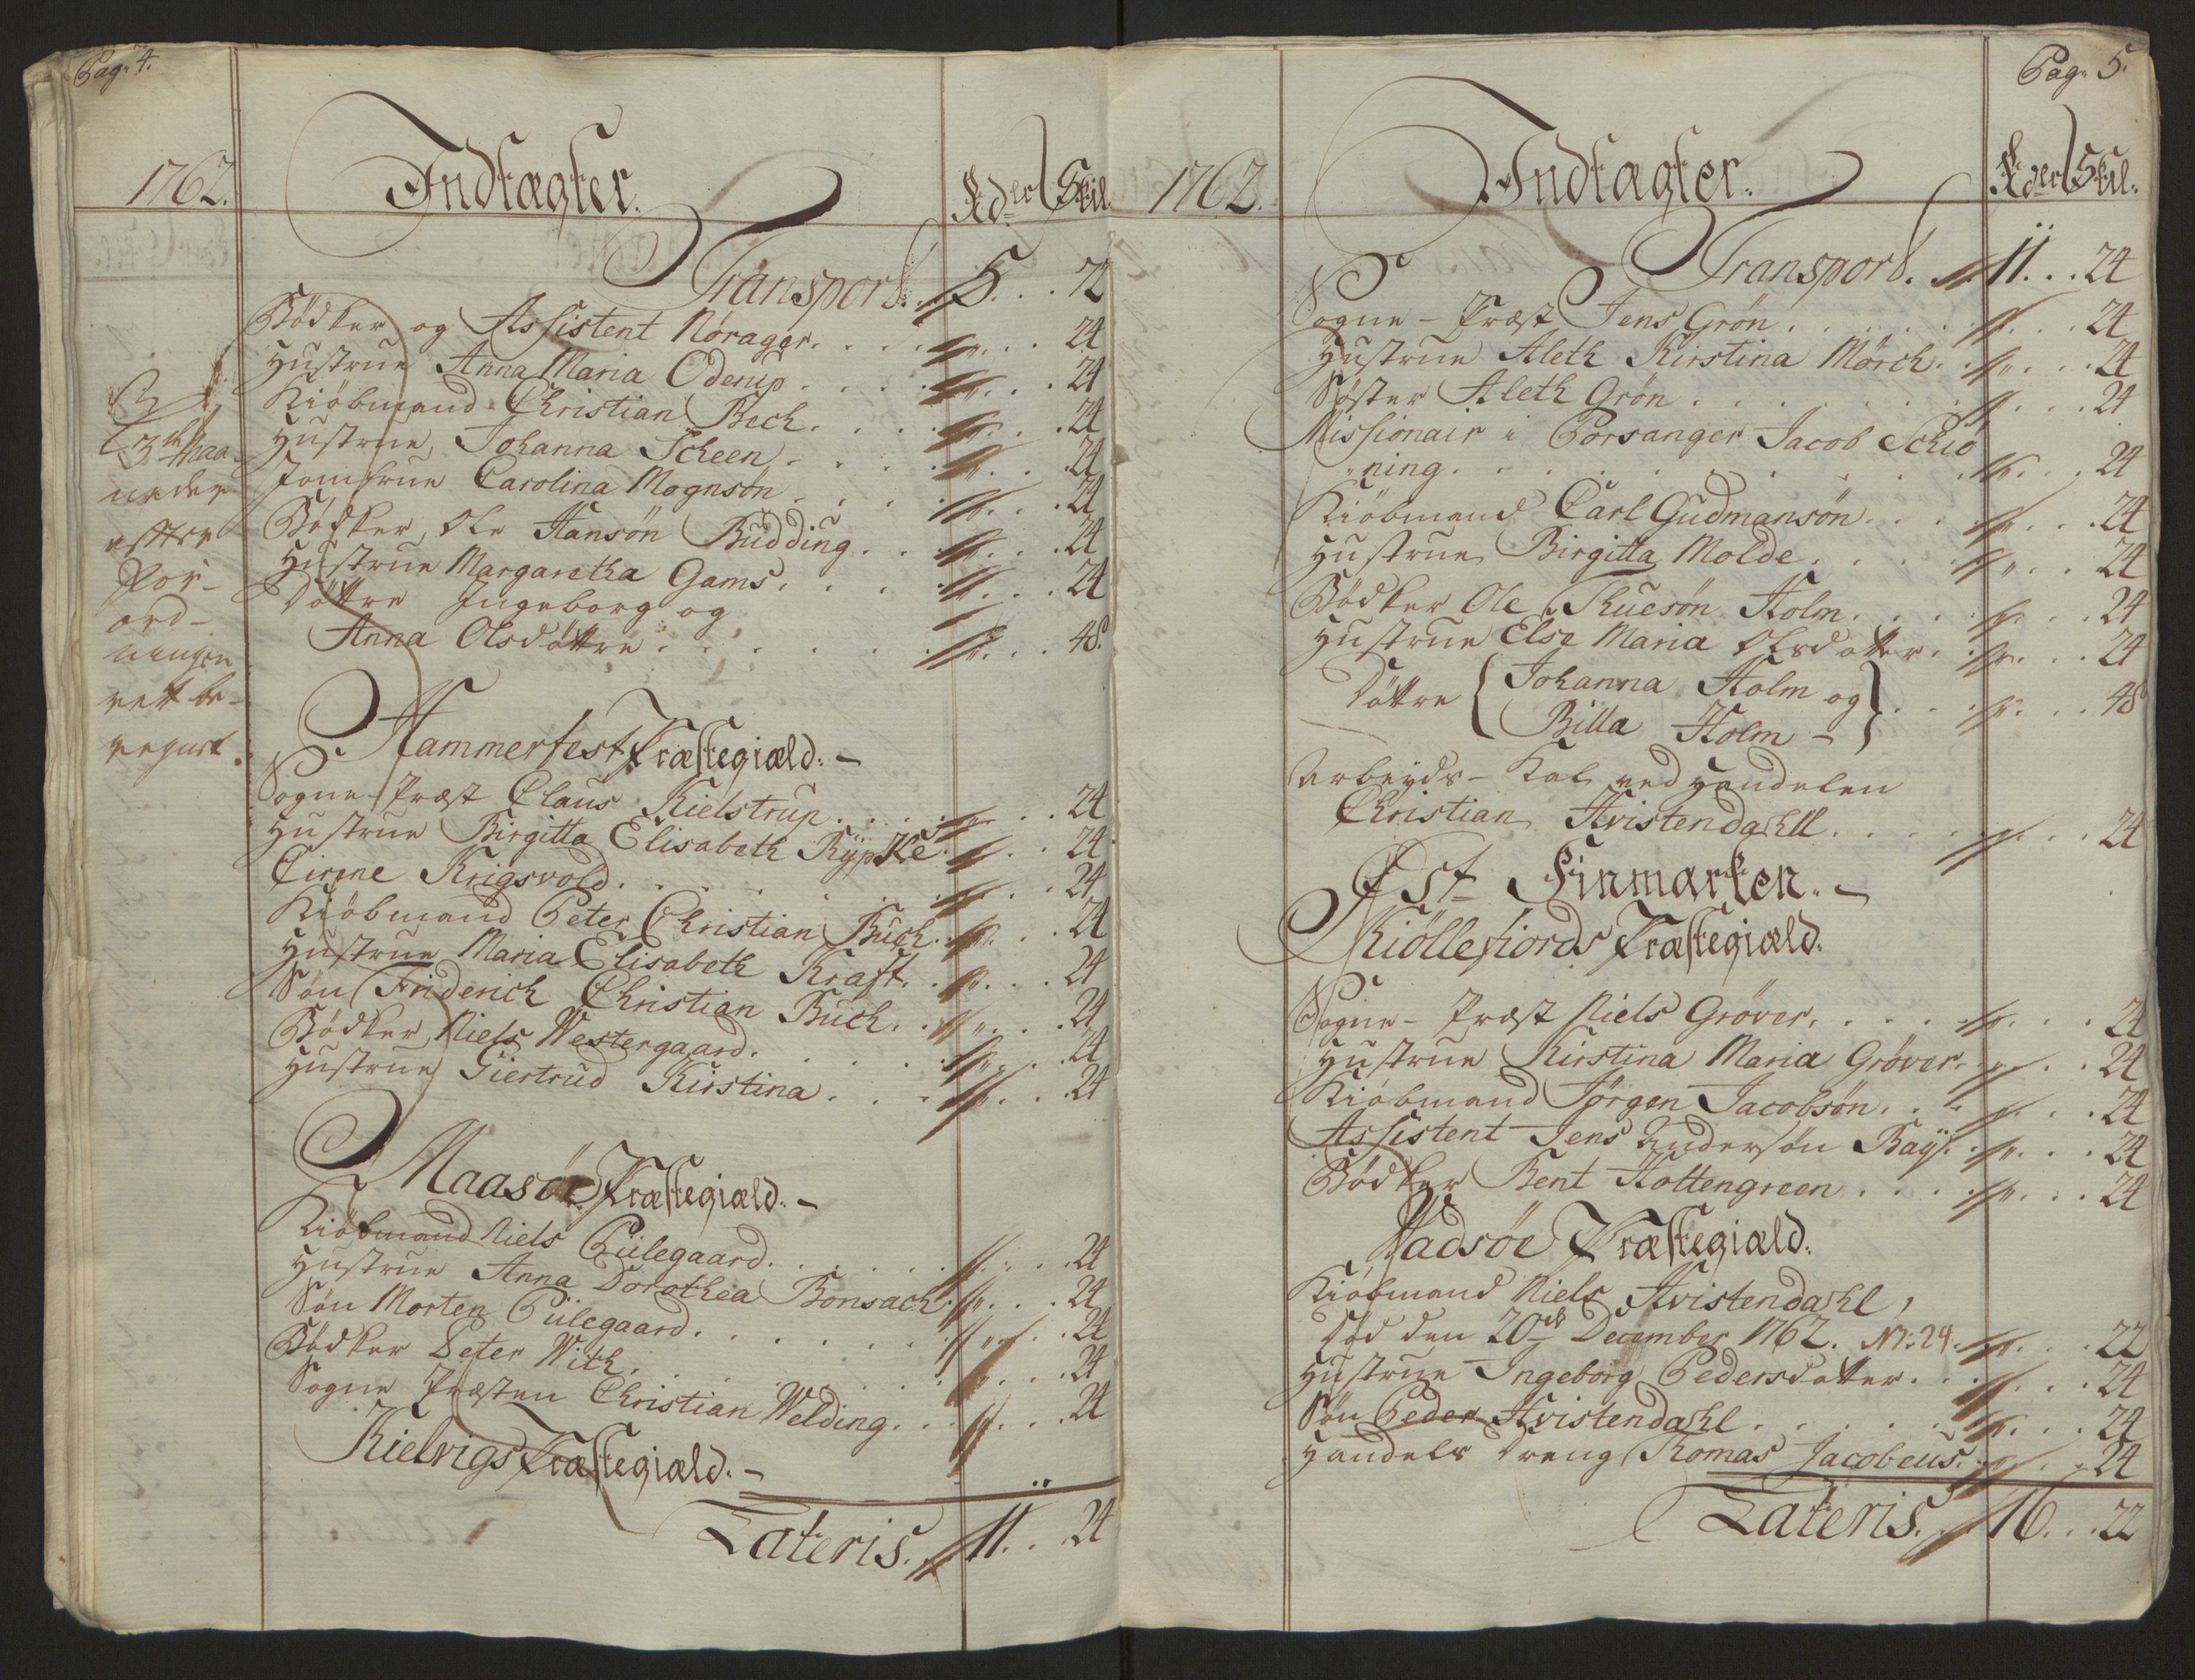 Pag: 4.
1762.
Indtægter.
Rdler Skil.
Transport. 5 . . . 72
Bödker og Assistent Nørager. . . . . 24
Hustrue Anna Maria Oderup . . . . . 24
Kiöbmand Christian Bech. . . . . 24
Hustrue Johanna Scheen . . . . . 24
Jomfrue Carolina Mognsøn . . . . . 24
Bödker Ole Hansøn Budding . . . . 24
Hustrue Margaretha Gams. . . . . 24
Døttre Ingeborg og
Anna Olsdøttre . . . . . 48.
3de Maa-
neder
efter
For-
ord-
ningen
rett be-
regnet.
Hammerfest Præstegiæld. -
Sogne-Præst Claus Kielstrup . . . . 24
Hustrue Birgitta Elisabeth Rÿpke . . . 24
Cirine Krigsvold . . . . . 24
Kiöbmand Peter Christian Buch. . . . 24
Hustrue Maria Elisabeth Kraft. . . . 24
Søn Friderich Christian Buch. . . . 24
Bödker Niels Westergaard. . . . . 24
Hustrue Giertrud Kirstina . . . . 24
Maasöe Præstegiæld. -
Kiöbmand Niels Piilegaard. . . . . 24
Hustrue Anna Dorothea Bonsach . . . 24
Søn Morten Piilegaard. . . . . 24
Bödker Peter With. . . . . 24
Sogne Præsten Christian Welding. . . . 24
Kielvigs Præstegiæld. -
Lateris. 11. . . 24
Pag: 5.
1762.
Indtægter.
Rdler Skil.
Transport. 11 . . . 24
Sogne - Præst Jens Grön . . . . . 24
Hustrue Aleth Kirstina Mørch. . . . 24
Søster Aleth Grön . . . . . 24
Missionair i Porsanger Jacob Schiö
ning . . . . . 24
Kiöbmand Carl Gudmansøn . . . . 24
Hustrue Birgitta Molde . . . . . 24
Bödker Ole Thuesøn Holm . . . . 24
Hustrue Else Maria Olsdatter . . . . 24
Døttre { Johanna Holm og
Billa Holm - } . . . . 48
Arbeyds - Karl ved Handelen
Christian Hvistendahll . . . . . 24
Øst Finmarken. -
Kiöllefiords Præstegiæld.
Sogne - Præst Niels Gröver. . . . . 24
Hustrue Kirstina Maria Gröver. . . . 24
Kiöbmand Jörgen Jacobsøn . . . . 24
Assistent Jens Andersøn Baÿ. . . . 24
Bödker Bent Hottengreen . . . . . 24
Vadsöe Præstegiæld.
Kiöbmand Niels Hvistendahl,
død den 20de December 1762. N: 24. . . . 22
Hustrue Ingeborg Pedersdatter . . . . 24
Søn Peder Hvistendahl . . . . . 24
Handels Dreng Thomas Jacobeus. . . . 24
Lateris. 16. . . 22